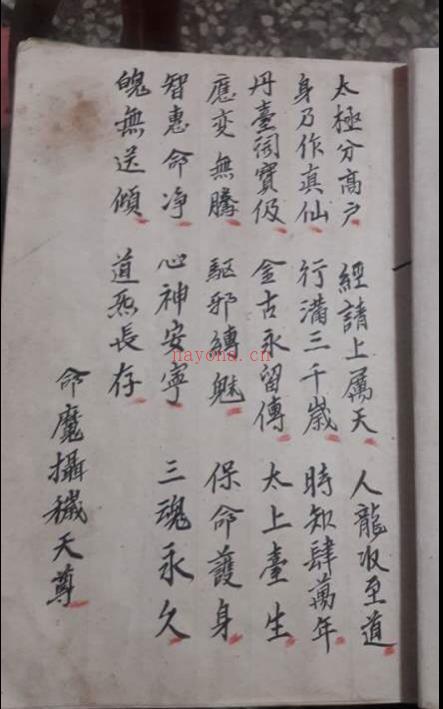 太極分高户 經請上屬天 人龍収至道
身乃作真仙 行滿三千歲 時知肆萬年
丹臺詞寶伋 金古永留傳 太上臺生
應变無騰 駆邪縛魅 保命護身
智惠命净 心神安寧 三魂永久
魄無送傾 道炁長存
命魔攝穢天尊
nayona.cn